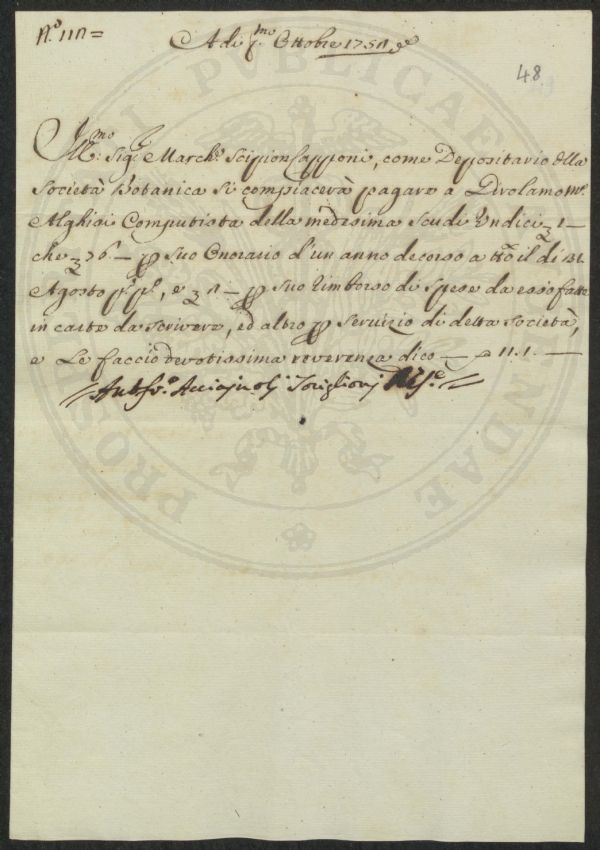 N.º 112=
A dì p.mo Ottobre 1752
48
Ill.mo Sig.r March.e Scipion Capponi, come Depositario della
Società Botanica si compiacerà pagare a Girolamo M.a
Alghisi Computista della medesima Scudi Undici ʒ 1 —
che ʒ 76 — p suo Onorario d'un anno decorso a tt.o il dì 31
Agosto p.o p.o, e ʒ 2 — p suo rimborso di spese da esso fatte
in carta da scrivere, ed altro p servizio di detta Società,
e Le faccio devotissima reverenza dico — 11.1. —
Acciajuoli Toriglioni
PVBLICAE